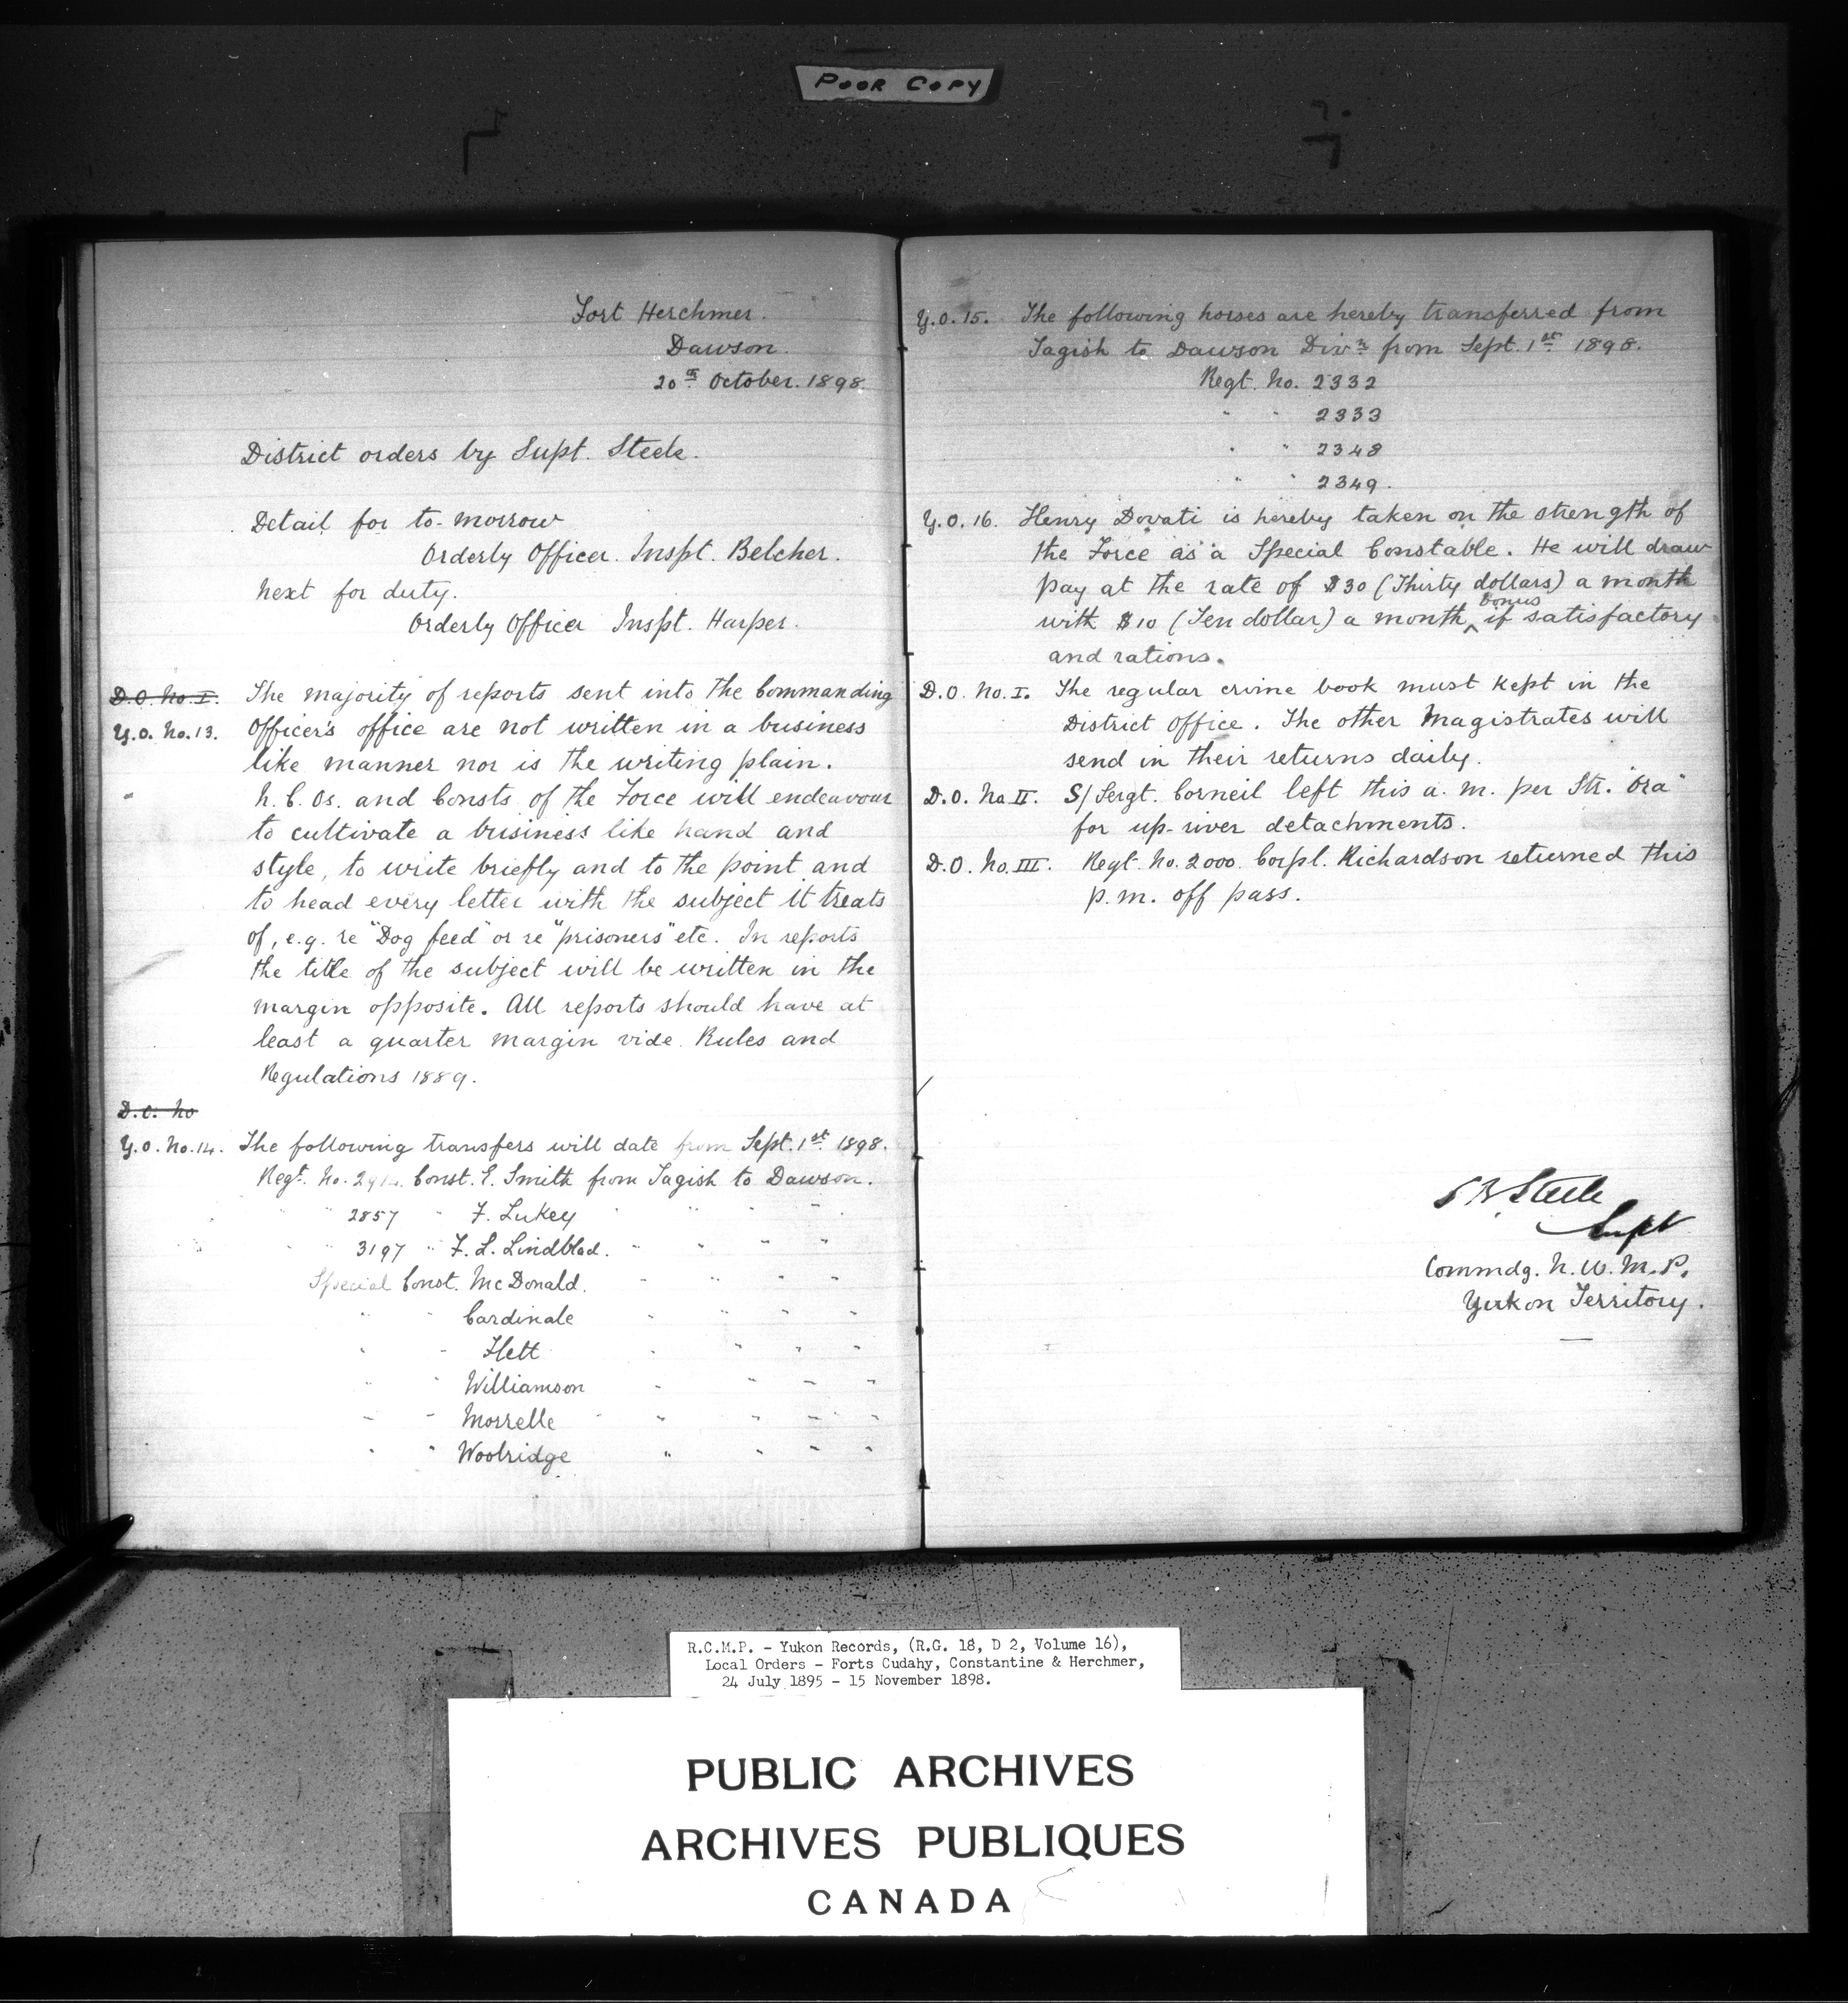 POOR COPY
Fort Herchmer.
Dawson.
20th October. 1898.
District orders by Supt. Steele.
Detail for to-morrow
Orderly Officer. Inspt. Belcher.
Next for duty.
Orderly Officer Inspt. Harper.
D.O. No. I. The majority of reports sent into the Commanding
Y.O. No. 13. Officer's office are not written in a business
like manner nor is the writing plain.
" N.C.Os. and Consts of the Force will endeavour
to cultivate a business like hand and
style, to write briefly and to the point and
to head every letter with the subject it treats
of, e.g. re "Dog feed" or re "prisoners" etc. In reports
the title of the subject will be written in the
margin opposite. All reports should have at
least a quarter margin vide. Rules and
Regulations 1889.
D.O. No
Y.O. No. 14. The following transfers will date from Sept. 1st 1898.
Regt. No. Const. E. Smith from Tagish to Dawson.
" " 2857 " F. Lukey " " " "
" " 3197 " F. L. Lindblad. " " " "
Special Const. McDonald. " " " "
" " Cardinale " " " "
" " Flett " " " "
" " Williamson " " " "
" " Morrelle " " " " "
" " Woolridge " " " "
Y.O. 15. The following horses are hereby transferred from
Tagish to Dawson Divn from Sept. 1st 1898.
Regt. No. 2332
" " 2333
" " 2348
" " 2349.
Y.O. 16. Henry Dovati is hereby taken on the strength of
the Force as a Special Constable. He will draw
pay at the rate of $30 (Thirty dollars) a month
with $10 (Ten dollar) a month bonus if satisfactory
and rations.
D.O. No. I. The regular crime book must kept in the
District Office. The other Magistrates will
send in their returns daily.
D.O. No II. S/Sergt. Corneil left this a.m. per Str. "Ora"
for up-river detachments.
D.O. No. III. Regt. No. 2000. Corpl. Richardson returned this
p.m. off pass.
S B Steele
Supt
Commdg. N.W.M.P.
Yukon Territory.
R.C.M.P. - Yukon Records, (R.G. 18, D 2, Volume 16),
Local Orders - Forts Cudahy, Constantine & Herchmer,
24 July 1895 - 15 November 1898.
PUBLIC ARCHIVES
ARCHIVES PUBLIQUES
CANADA